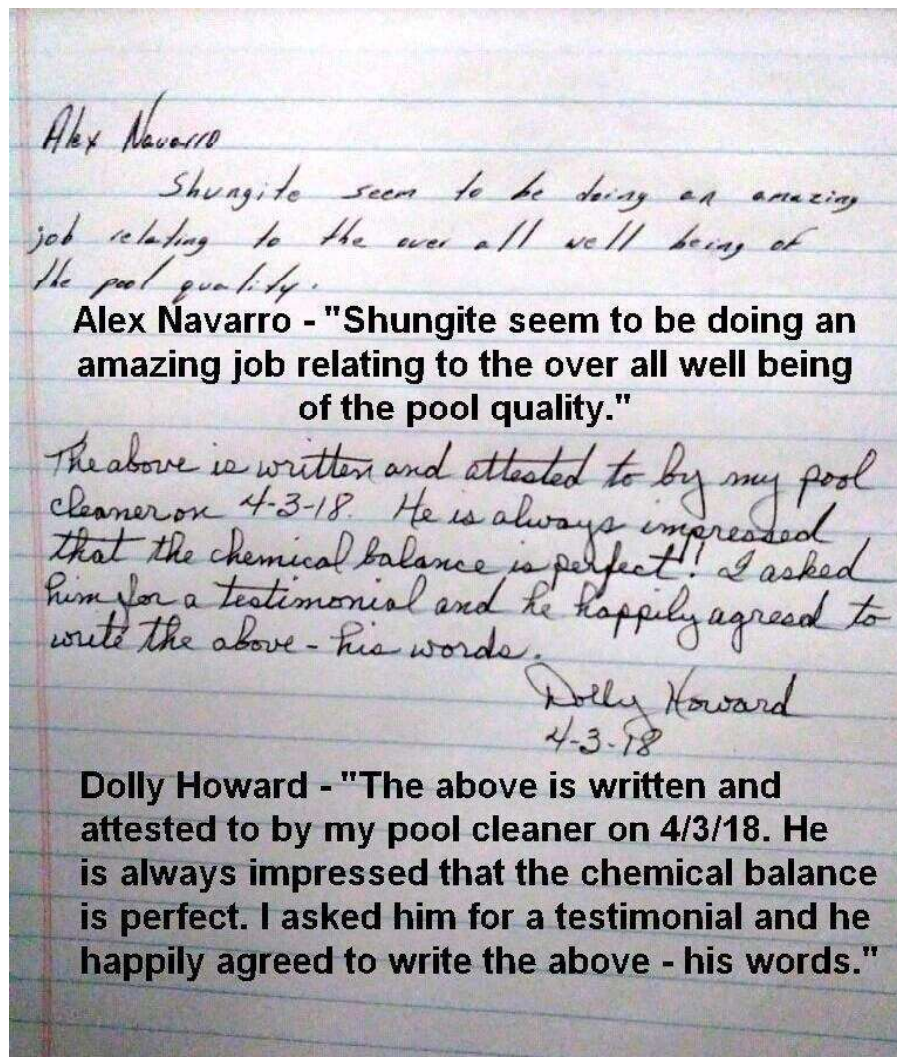 Alex Navarro
Shungite seem to be doing an amazing
job relating to the over all well being of
the pool quality.
Alex Navarro - "Shungite seem to be doing an
amazing job relating to the over all well being
of the pool quality."
The above is written and attested to by my pool
cleaner on 4-3-18. He is always impressed
that the chemical balance is perfect! I asked
him for a testimonial and he happily agreed to
write the above - his words.
Dolly Howard
4-3-18
Dolly Howard - "The above is written and
attested to by my pool cleaner on 4/3/18. He
is always impressed that the chemical balance
is perfect. I asked him for a testimonial and he
happily agreed to write the above - his words."